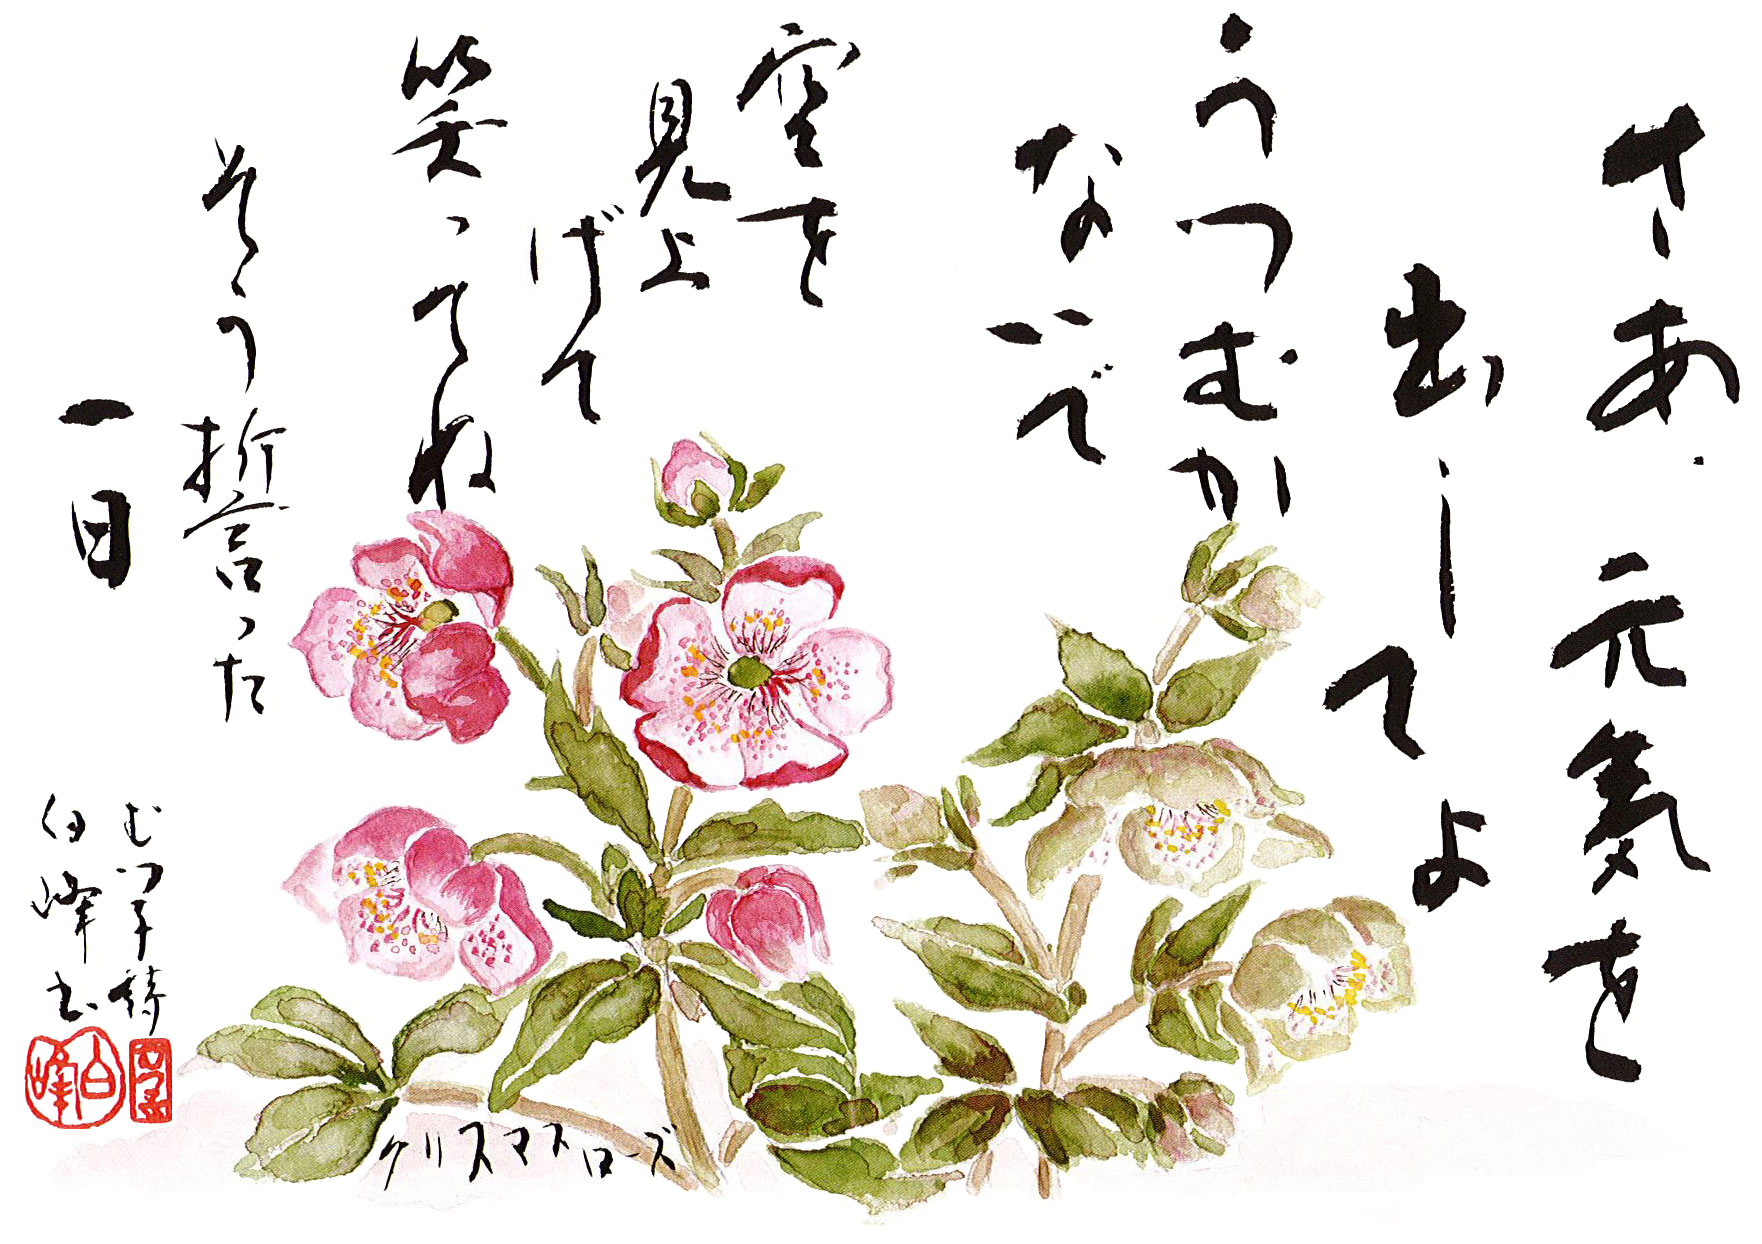 さあ.元気を
出してよ
うつむか
ないで
空を
見上
げて
笑ってね
そう誓った
一日
むつ子 詩
白峰 書
白峰
クリスマスローズ